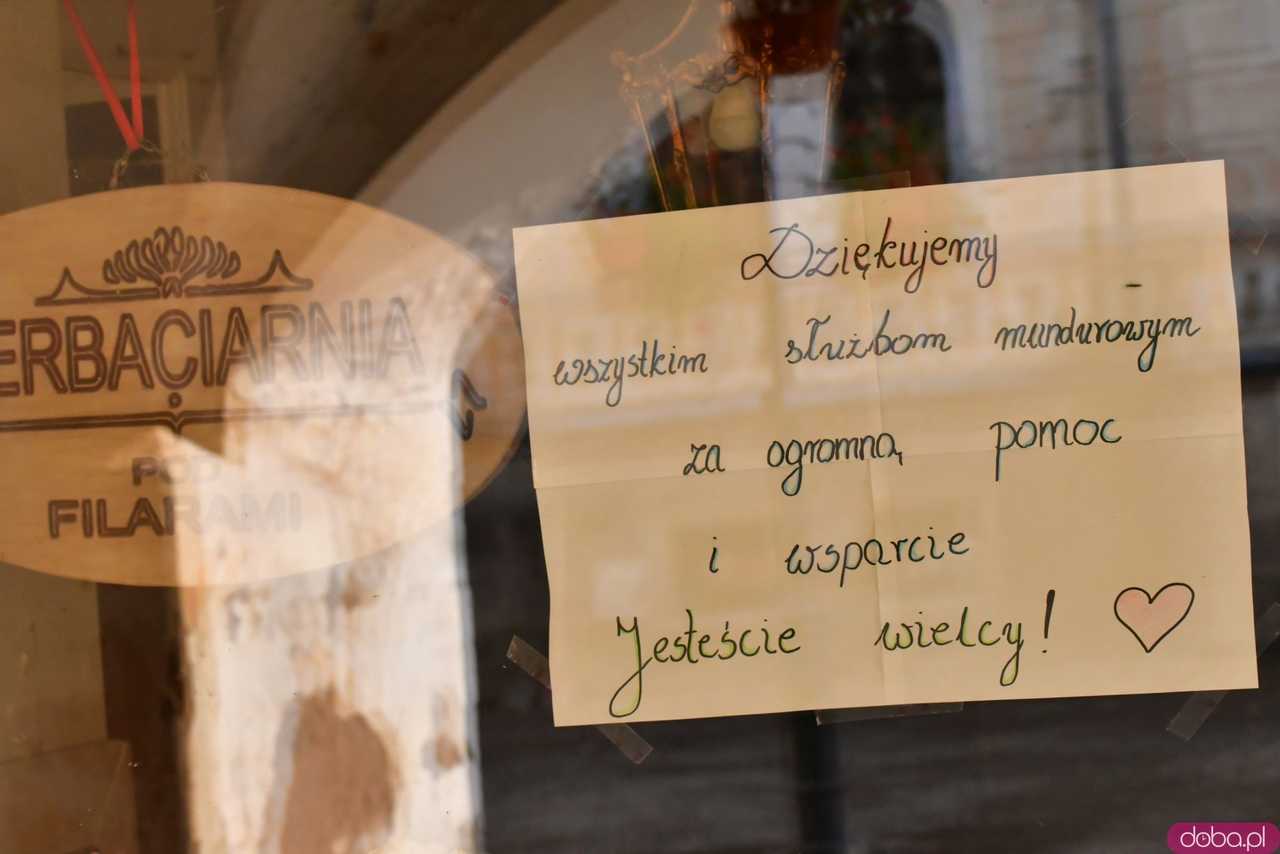 ERBACIARNIA
POD
FILARAMI
Dziękujemy
wszystkim służbom mundurowym
za ogromną pomoc
i wsparcie
Jesteście wielcy!
doba.pl